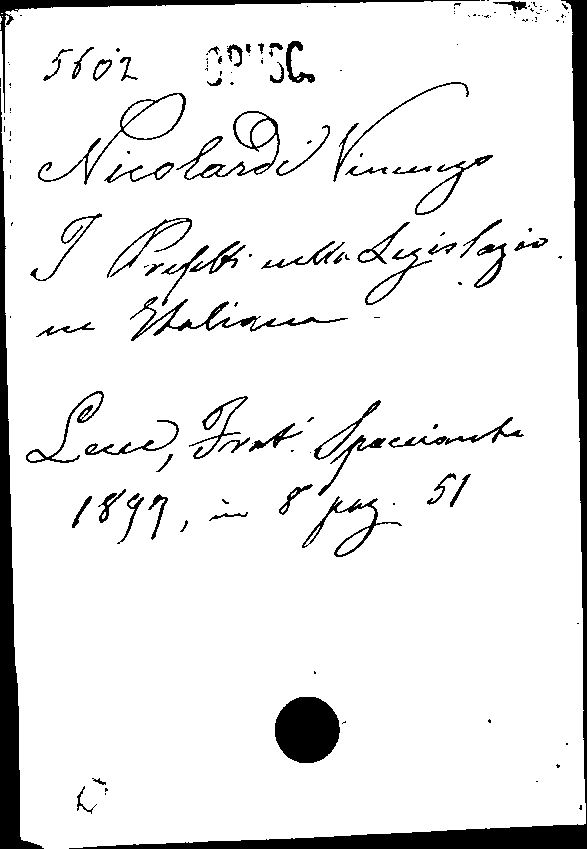 5602 OPUSC.
Nicolardi Vincenzo
I Prefetti nella Legislazio
ne Italiana
Lecce, Frat. Spacciante
1897, in 8° pag. 51